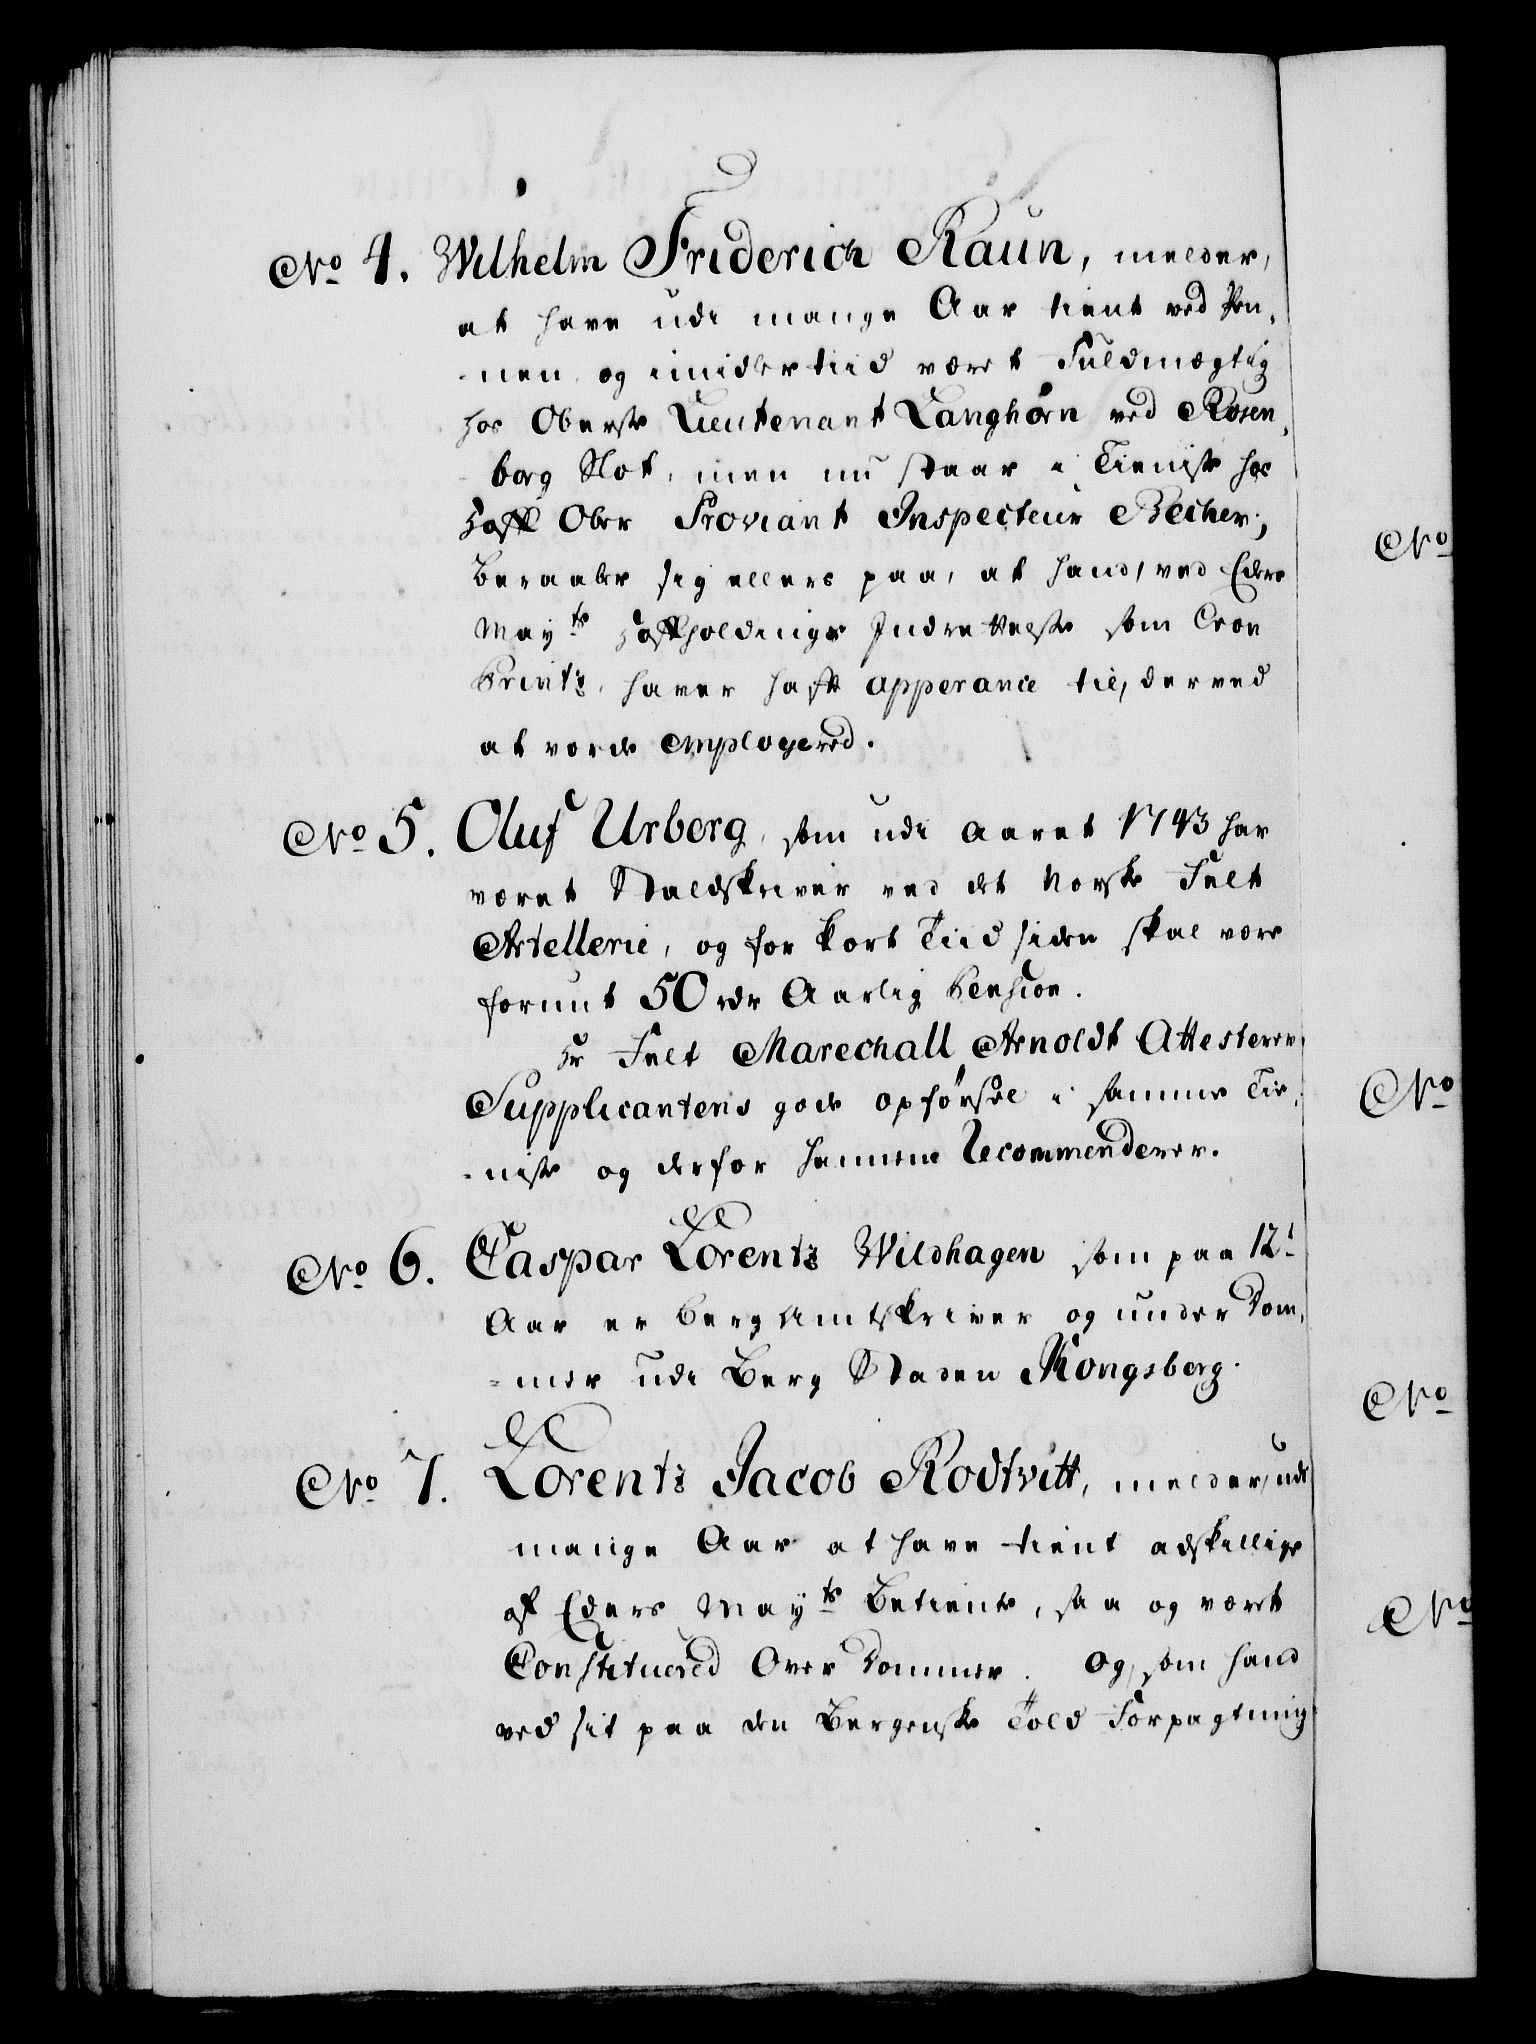 No 4. Wilhelm Friderich Raun, melder,
at have udi mange Aar tient ved Pen,
-nen, og imidlertiid været Fuldmægtig
hos Oberste Lieutenant Langhorn ved Rosen,
-borg Slot, men nu staar i Tieniste hos
Hoff Ober Proviant Inspecteur Becher;
Beraaber sig ellers paa, at hand, ved Eders
Mayts Hoffholdings Indrettelse som Cron
Printz, haver hafft apperance til, derved
at vorde employered.
No 5. Oluf Urberg, som udi Aaret 1743 har
været Staldskriver ved det Norske Felt
Artellerie, og for kort Tiid siden skal være
forunt 50 rdr Aarlig Pension.
Hr Felt Marechall Arnoldt Attesterer
Supplicantens gode opførsel i samme Tie,
-niste og derfor hannem Recommenderer.
No 6. Caspar Lorentz Wildhagen som paa 12t
Aar er Berg Amtskriver og under Dom,
-mer udi Berg Staden Kongsberg.
No 7. Lorentz Jacob Rodtvitt, melder, udi
mange Aar at have tient adskillige
af Eders Mayts Betiente, saa og været
Constituered Over Dommer. Og, som hand
ved sit paa den Bergenske Told Forpagtning
No
No
No
No